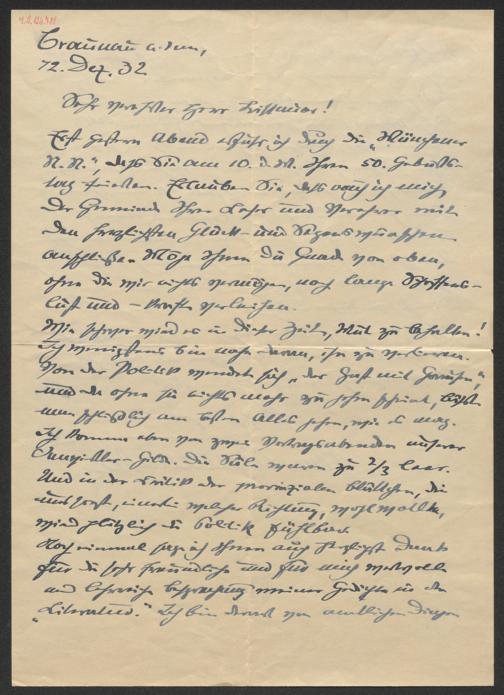 Braunau a. Inn,
12. Dez. 32
Sehr verehrter Herr
Erst gestern Abend erfuhr ich durch die „Münchener
N. N.", daß Sie am 10. d. M. Ihren 50. Geburts-
tag feierten. Erlauben Sie, daß auch ich mich
der Gemeinde Ihrer Leser und Verehrer mit
den herzlichsten Glück- und Segenswünschen
anschließe. Möge Ihnen die Gnade von oben,
ohne die wir nichts vermögen, noch lange Schaffens-
lust und – kraft verleihen.
Wie schwer wird es in dieser Zeit, Mut zu behalten!
Ich wenigstens bin nahe daran, ihn zu verlieren.
Von der Politik wendet sich „der Gast mit Grausen",
und da ohne sie nichts mehr zu gehen scheint, läßt
man schließlich am besten Alles gehen, wie es mag.
Ich komme eben von zwei Vortragsabenden unserer
Gilde. Die Säle waren zu 2/3 leer.
Und in der Kritik der provinzialen Blättchen, die
uns sonst, welcher Richtung,
wird plötzlich die Politik fühlbar.
Noch einmal sage ich Ihnen auch herzlichst Dank
für die sehr freundliche und für mich wertvolle
und lehrreiche Besprechung meiner Gedichte in der
„Literatur." Ich bin derart von amtlichen Dingen